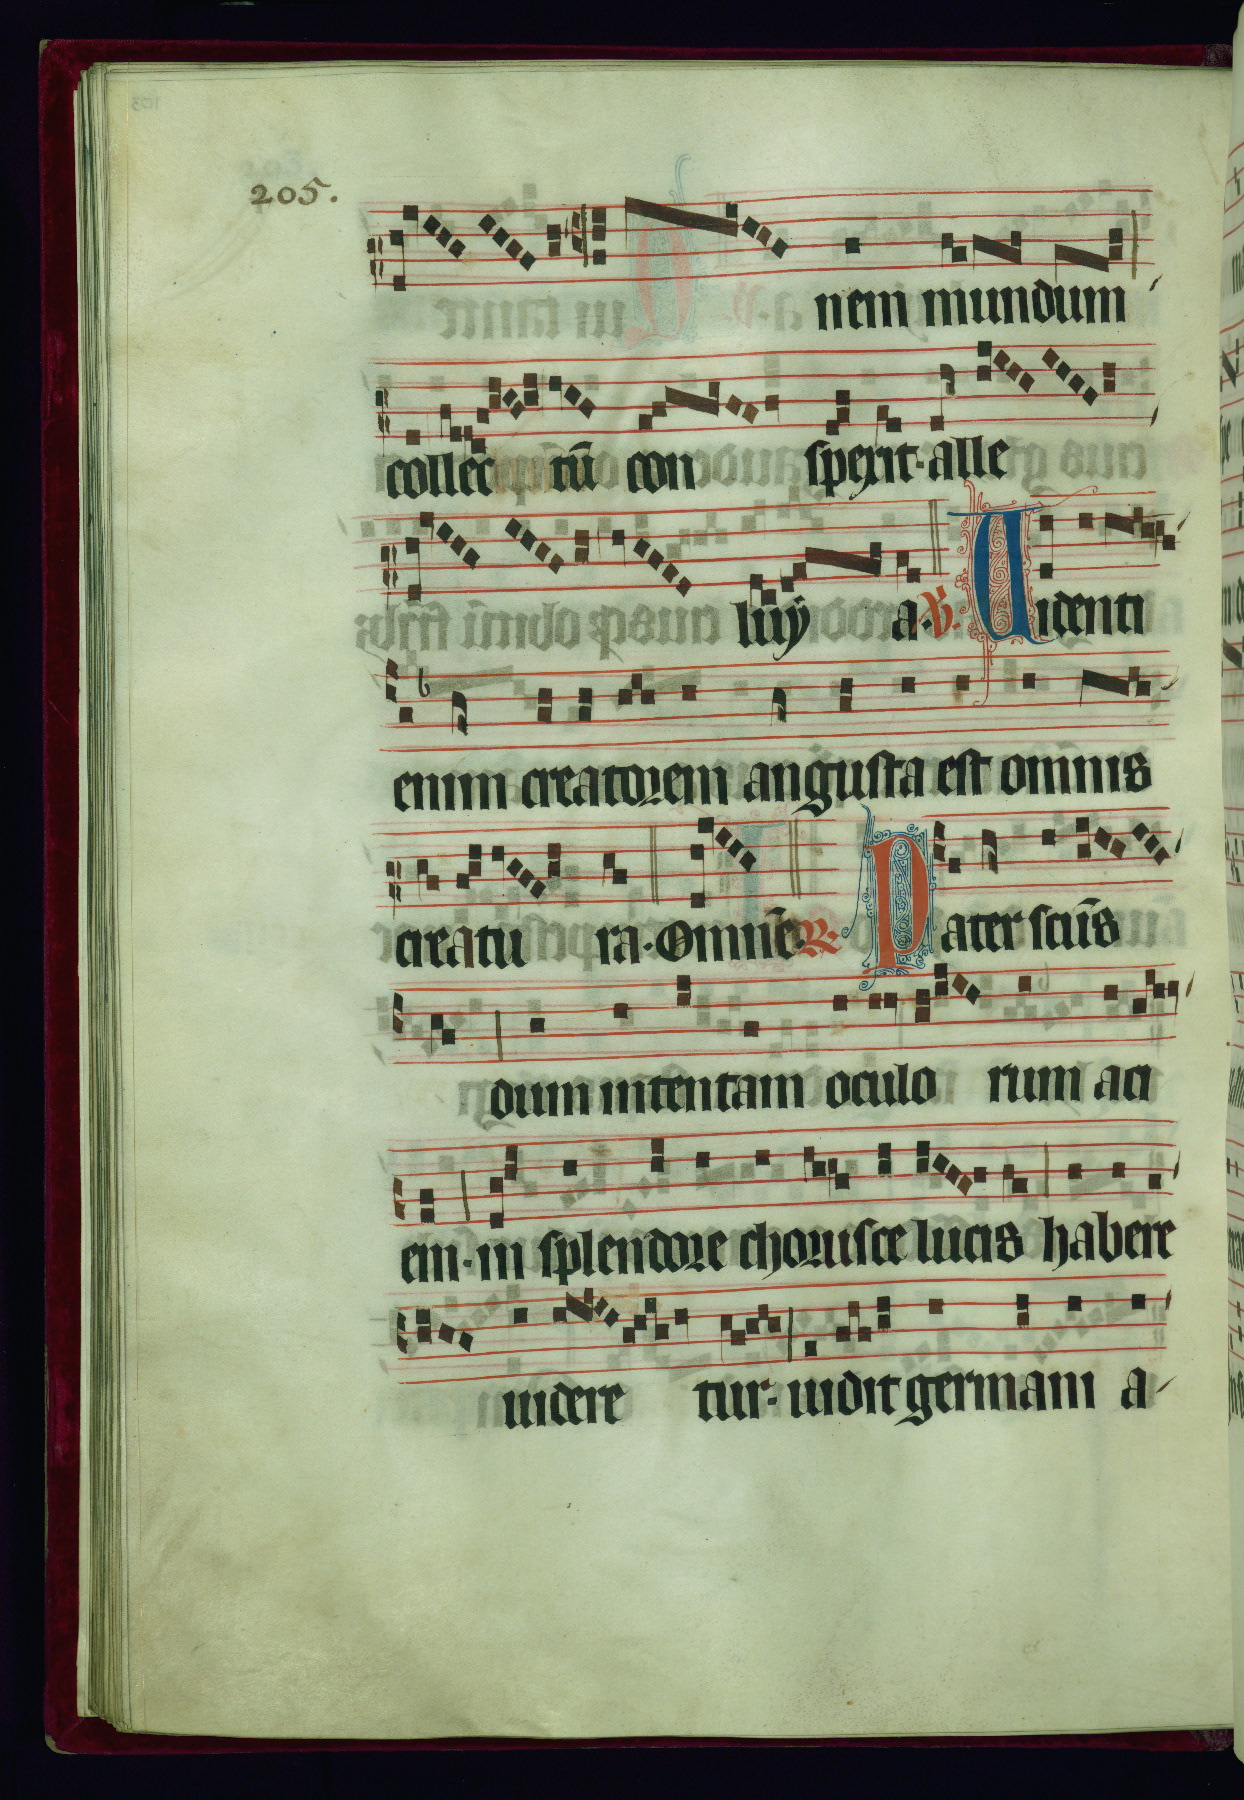 205.
nem mundum
collec tū con spexit· alle
luiȷ a· ℣. Uidenti
enim creatorem angusta est omnis
creatu ra· Omnē· ℟. Pater scūs
dum intentam oculo rum aci
em· in splendore choruisce lucis habere
uidere tur· uidit germani a-